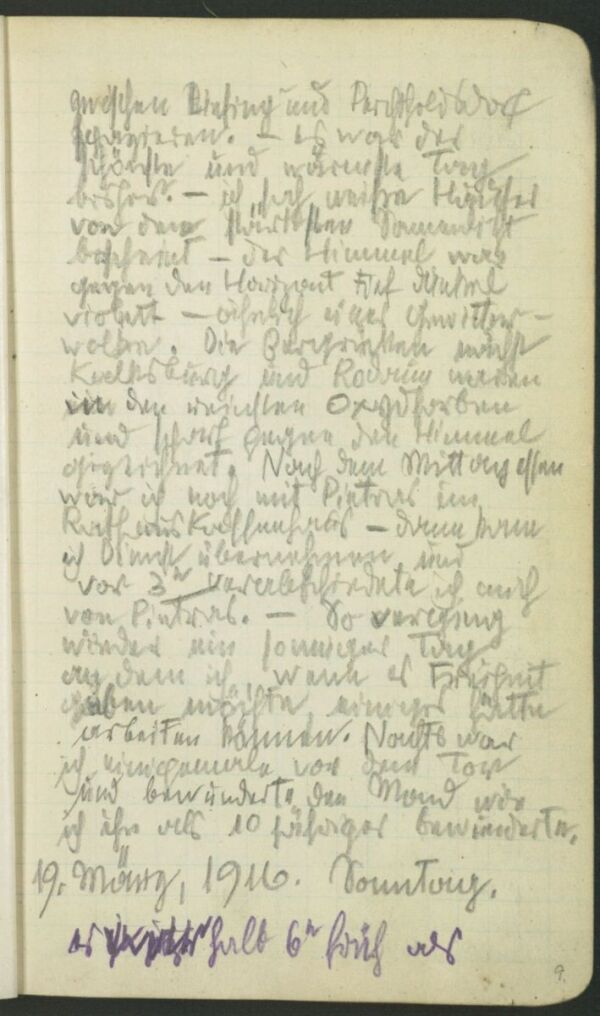 zwischen Liesing und Perchtholdsdorf
spazieren. – es war der
schönste und wärmste Tag
bisher. – ich sah weiße Häuser
von dem stärksten Sonnenlicht
bescheint – der Himmel war
gegen den Horizont tief dunkel
violett – ähnlich einer Gewitter-
wolke. Die Bergrietten nächst
Kalksburg und Rodaun waren
in den reichsten Oxydfarben
und scharf gegen den Himmel
gezeichnet. Nach dem Mittagessen
war ich noch mit Pietras im
Rathauskaffeehaus – dann kam
ich Dienst übernehmen und
vor 3 h verabschiedete ich mich
von Pietras. – So verging
wieder ein sonniger Tag
an dem ich, wenn es Freiheit
geben möchte, einiges hätte
arbeiten können. Nachts war
ich einigemale vor dem Tor
und bewunderte den Mond wie
ich ihn als 10 jähriger bewunderte.
19. März, 1916. Sonntag.
es halb 6 h früh als
9.